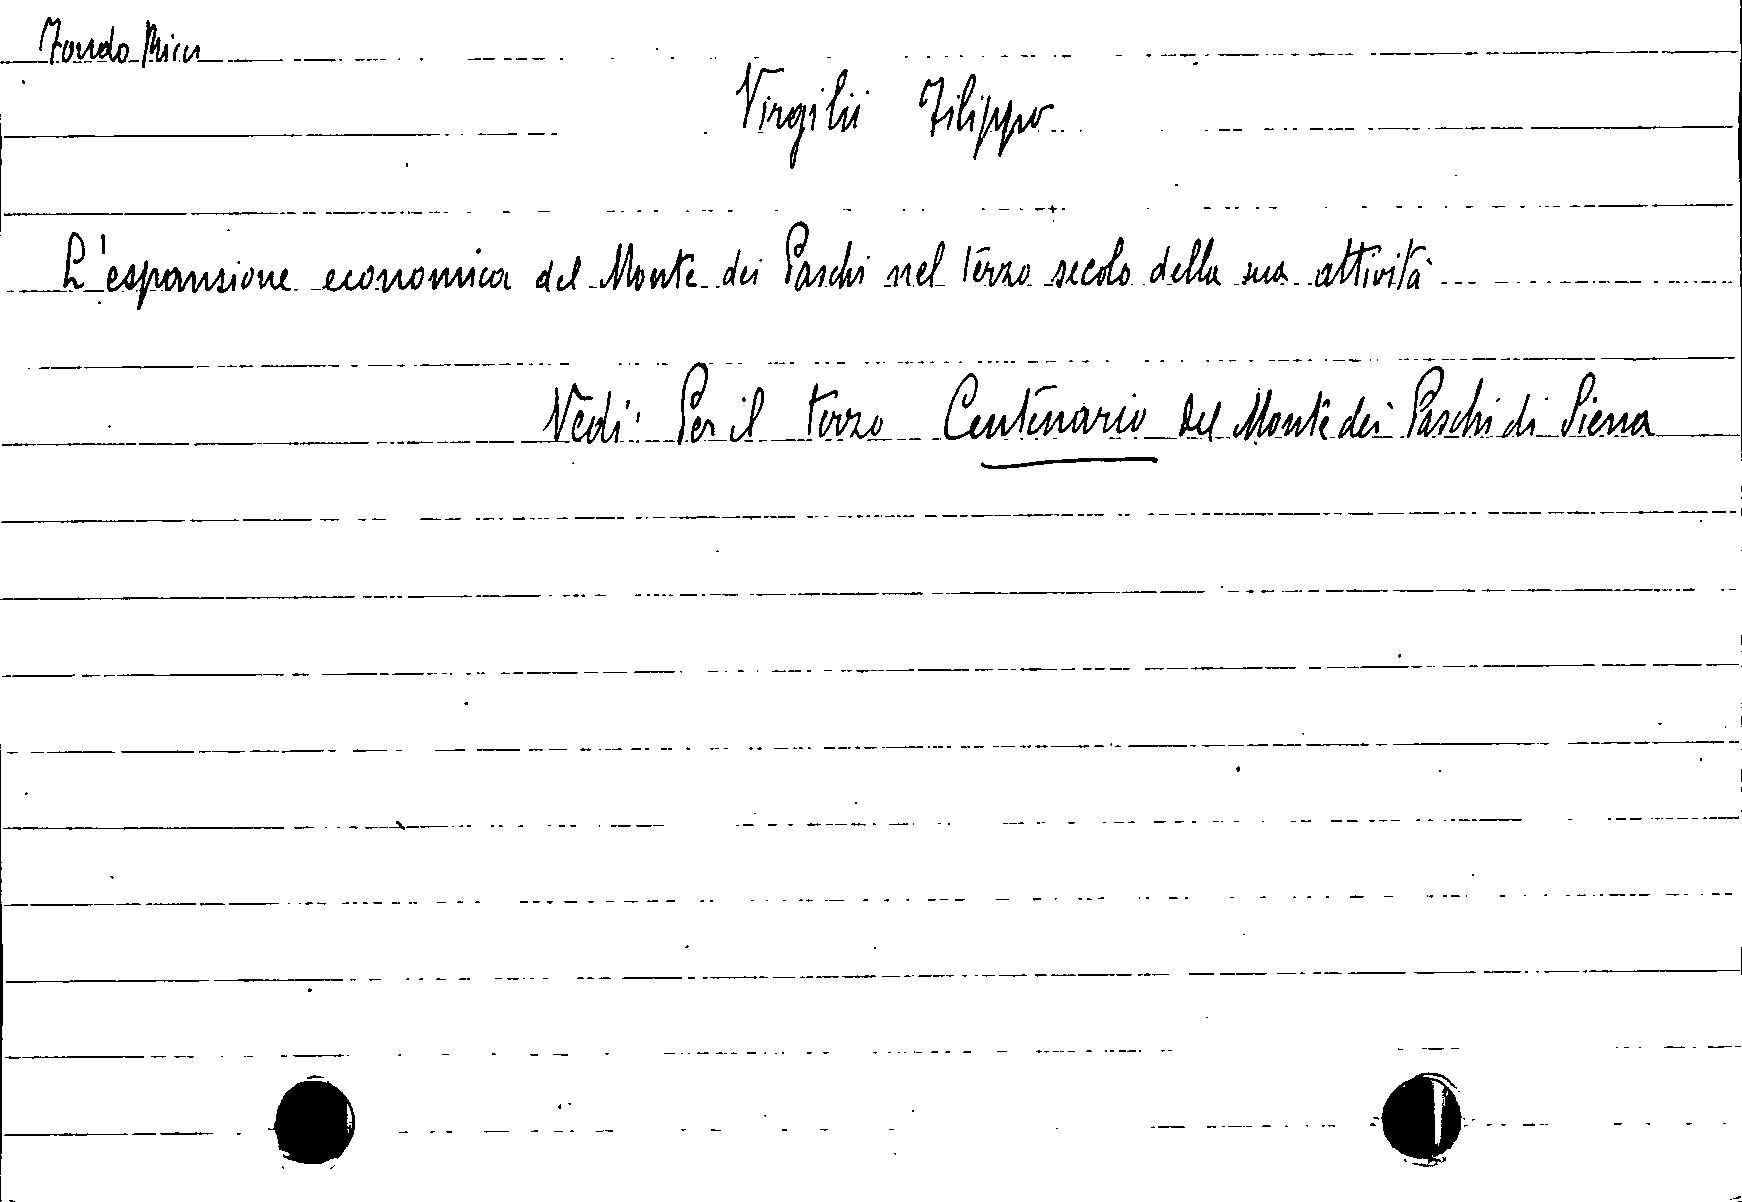 Fondo
Virgilii Filippo
L'espansione economica del Monte dei Paschi nel terzo secolo della sua attività
Vedi: Per il terzo Centenario del Monte dei Paschi di Siena